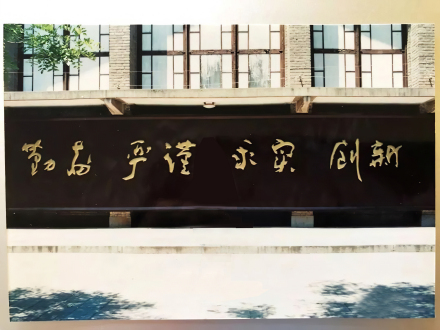 勤奋 严谨 求实 创新